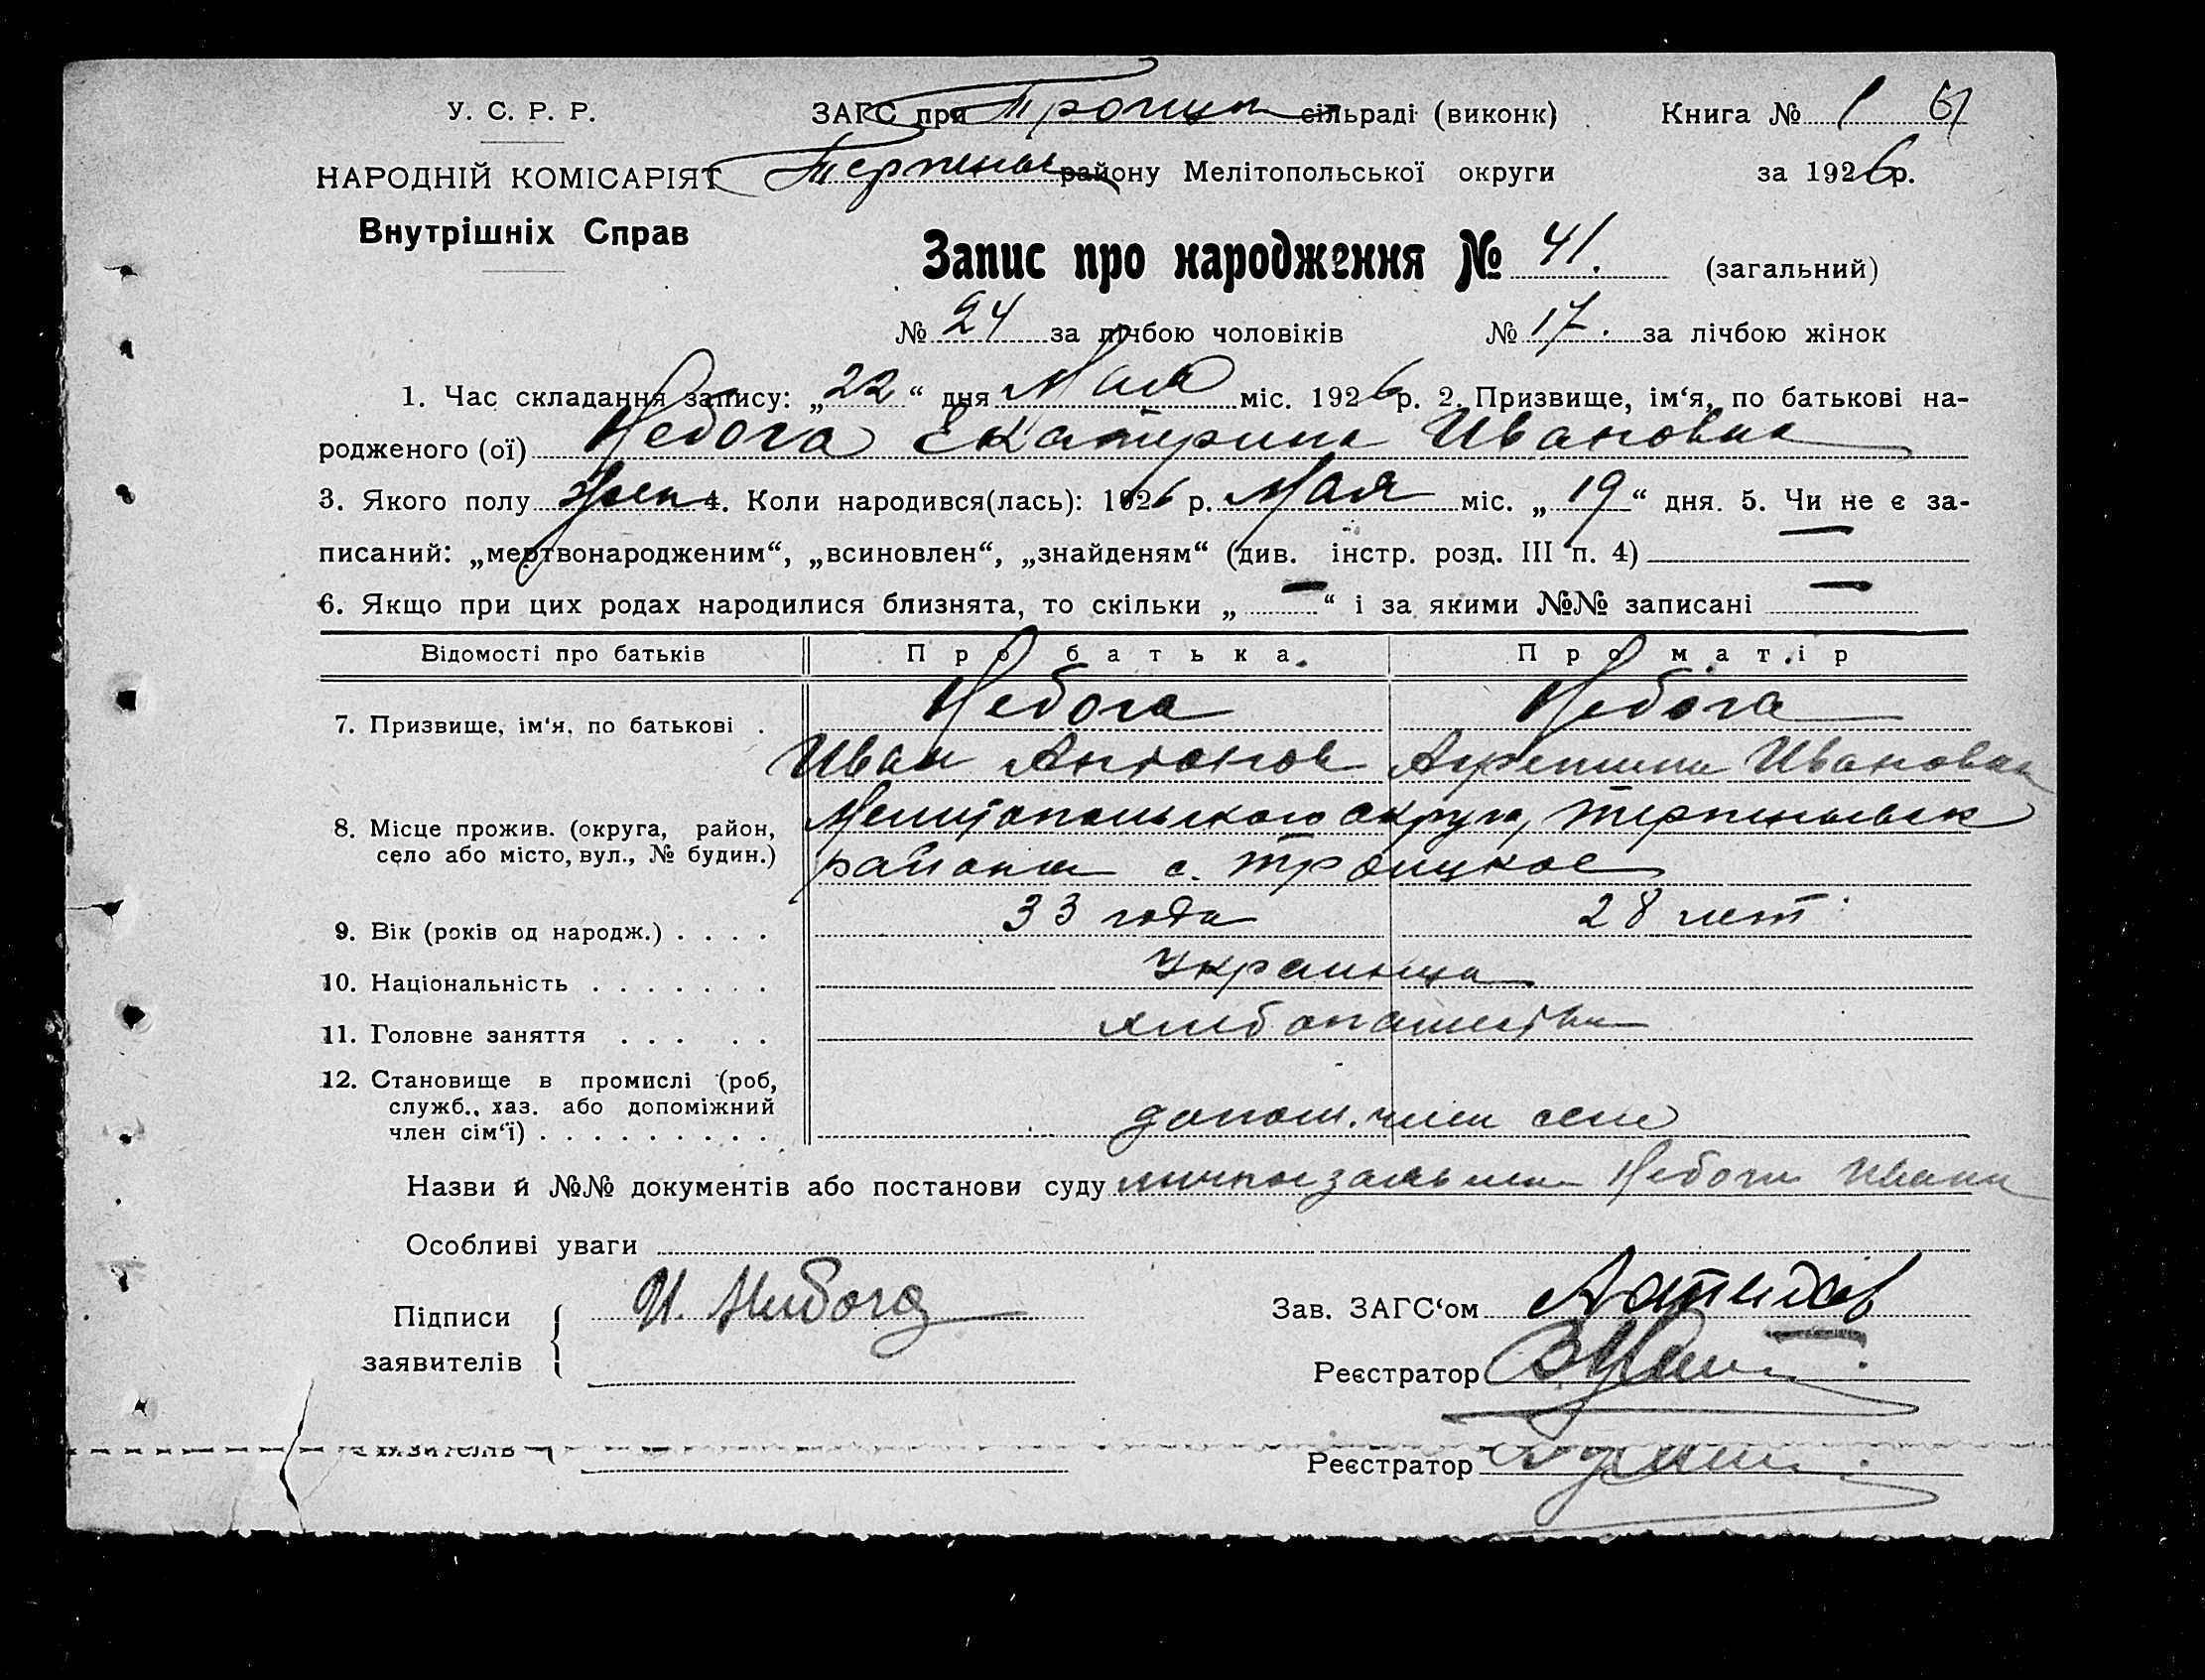 У. С. Р. Р.
ЗАГС при Троицк сільраді (виконк)
Книга № 1 61
НАРОДНІЙ КОМІСАРІЯТ
Терпеньев району Мелітопольської округи
за 1926 р.
Внутрішніх Справ
Запис про народження № 41. (загальний)
№ 24 за лічбою чоловіків № 17. за лічбою жінок
1. Час складання запису: „22“ дня Мая міс. 1926 р. 2. Призвище, ім‘я, по батькові на-
родженого (ої) Небога Екатерина Ивановна
3. Якого полу жен 4. Коли народився(лась): 1926 р. Мая міс. „19“ дня. 5. Чи не є за-
писаний: „мертвонародженим“, „всиновлен“, „знайденям“ (див. інстр. розд. III п. 4) —
6. Якщо при цих родах народилися близнята, то скільки „—“ і за якими №№ записані —
Відомості про батьків Про батька. Про матір
7. Призвище, ім‘я, по батькові . Небога Небога
Иван Антонов Агрепина Ивановна
8. Місце прожив. (округа, район, Мелитопольского округа, Терпеньевск
село або місто, вул., № будин.) района с. Троицкое
9. Вік (років од народж.) . . . . 33 года 28 лет
10. Національність . . . . . . . Украинцы
11. Головне заняття . . . . . хлебопашество
12. Становище в промислі (роб,
служб., хаз. або допоміжний
член сім‘ї) . . . . . . . . . допом. член семи
Назви й №№ документів або постанови суду личное заявлен Небоги Ивана
Особливі уваги
Підписи И. Небога Зав. ЗАГС‘ом
заявителів Реєстратор
заявителів Реєстратор